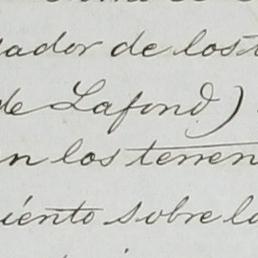 ador de los
de Lafond)
en los terren
iento sobre lo